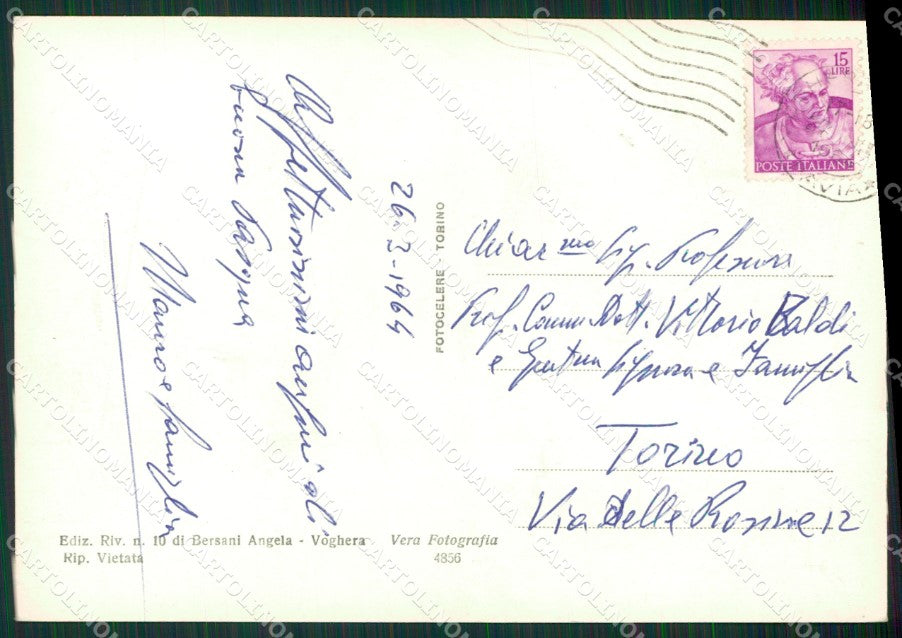 Affettuosissimi auguri di
buona Pasqua
Mauro e famiglia
26-3-1964
FOTOCELERE - TORINO
15
LIRE
POSTE ITALIANE
Chiar.mo Sig. Professore
Prof. Comm. Dott. Vittorio Baldi
e Gent.ma Signora e Famiglia
Torino
Via delle Rosine 12
Ediz. Riv. n. 10 di Bersani Angela - Voghera
Rip. Vietata
Vera Fotografia
4856
CARTOLINOMANIA